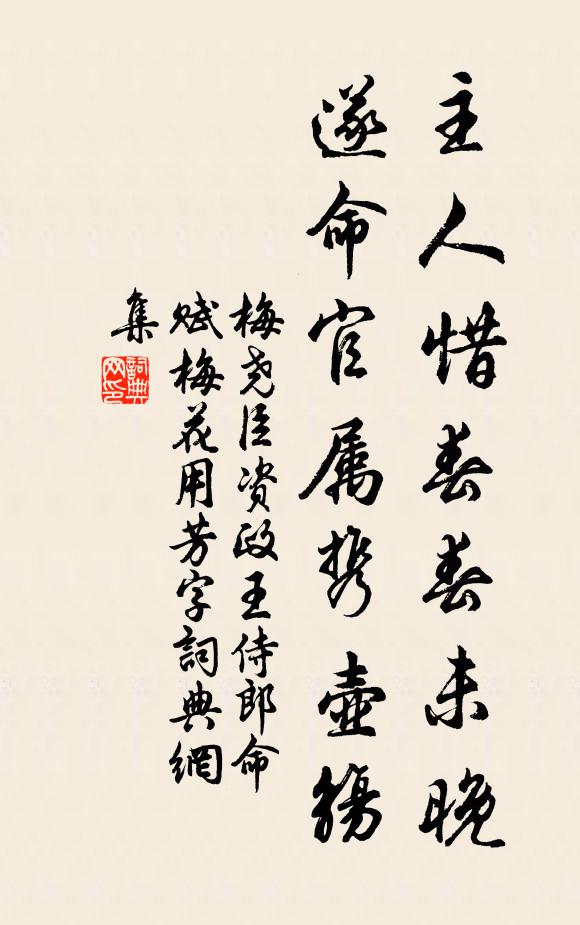 主人惜春春未晚
遂命官属携壶觞
梅尧臣资政王侍郎命
赋梅花用芳字詞典網
集
詞典
网印